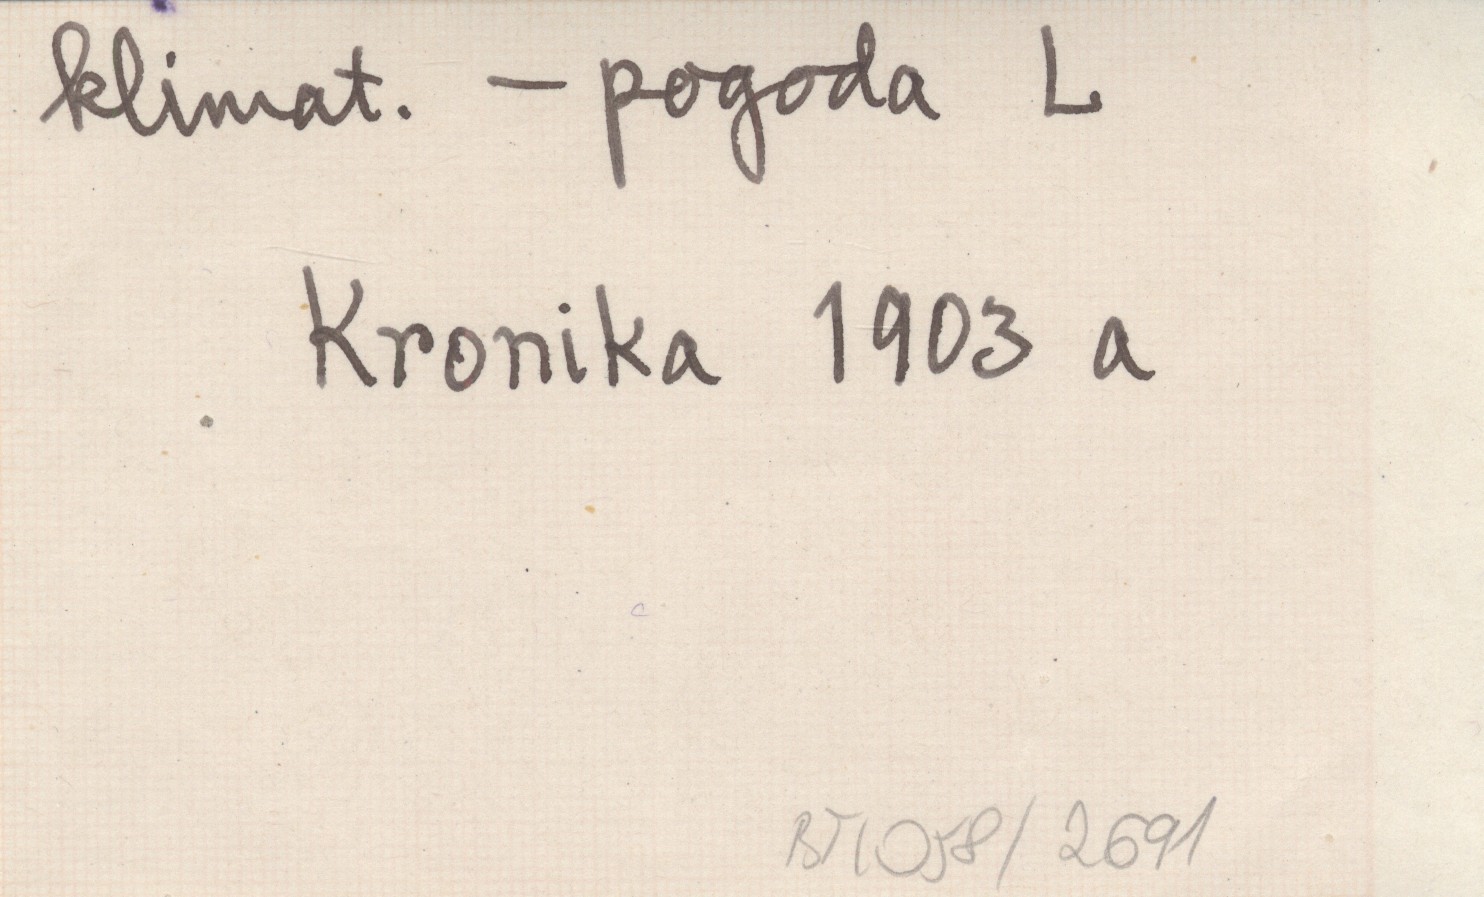 klimat. – pogoda L
Kronika 1903 a
BT1058/2691